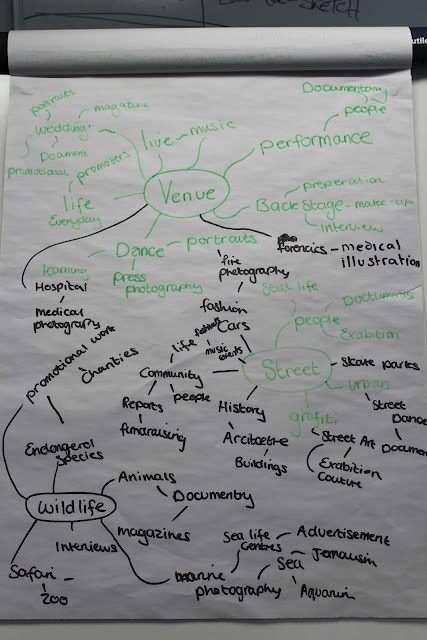 SKETCH
Documentary
people
performance
portraits
magazine
wedding
Document
promotional
promoters
live - music
Venue
life
Everyday
preperation
Back Stage - make-up
interview
Dance - portraits
learning
press
photography
forencics - medical
illustration
Hospital
medical
photography
fire
photography
Still life
fashion
Cars
people
Documents
Exabition
promotional work
Charities
life
festivals
music
events
Community
people
Reports
fundraising
Street
Skate parks
urban
Street
Dance
Docume
History
Arcitectre
Buildings
grafiti
Street Art
Exabition
Couture
Endangered
Species
Wildlife
Animals
Documentry
magazines
Interviews
Safari
Zoo
marine
photography
Sea life
Centres
Advertisement
Sea
Jernalisim
Aquarium